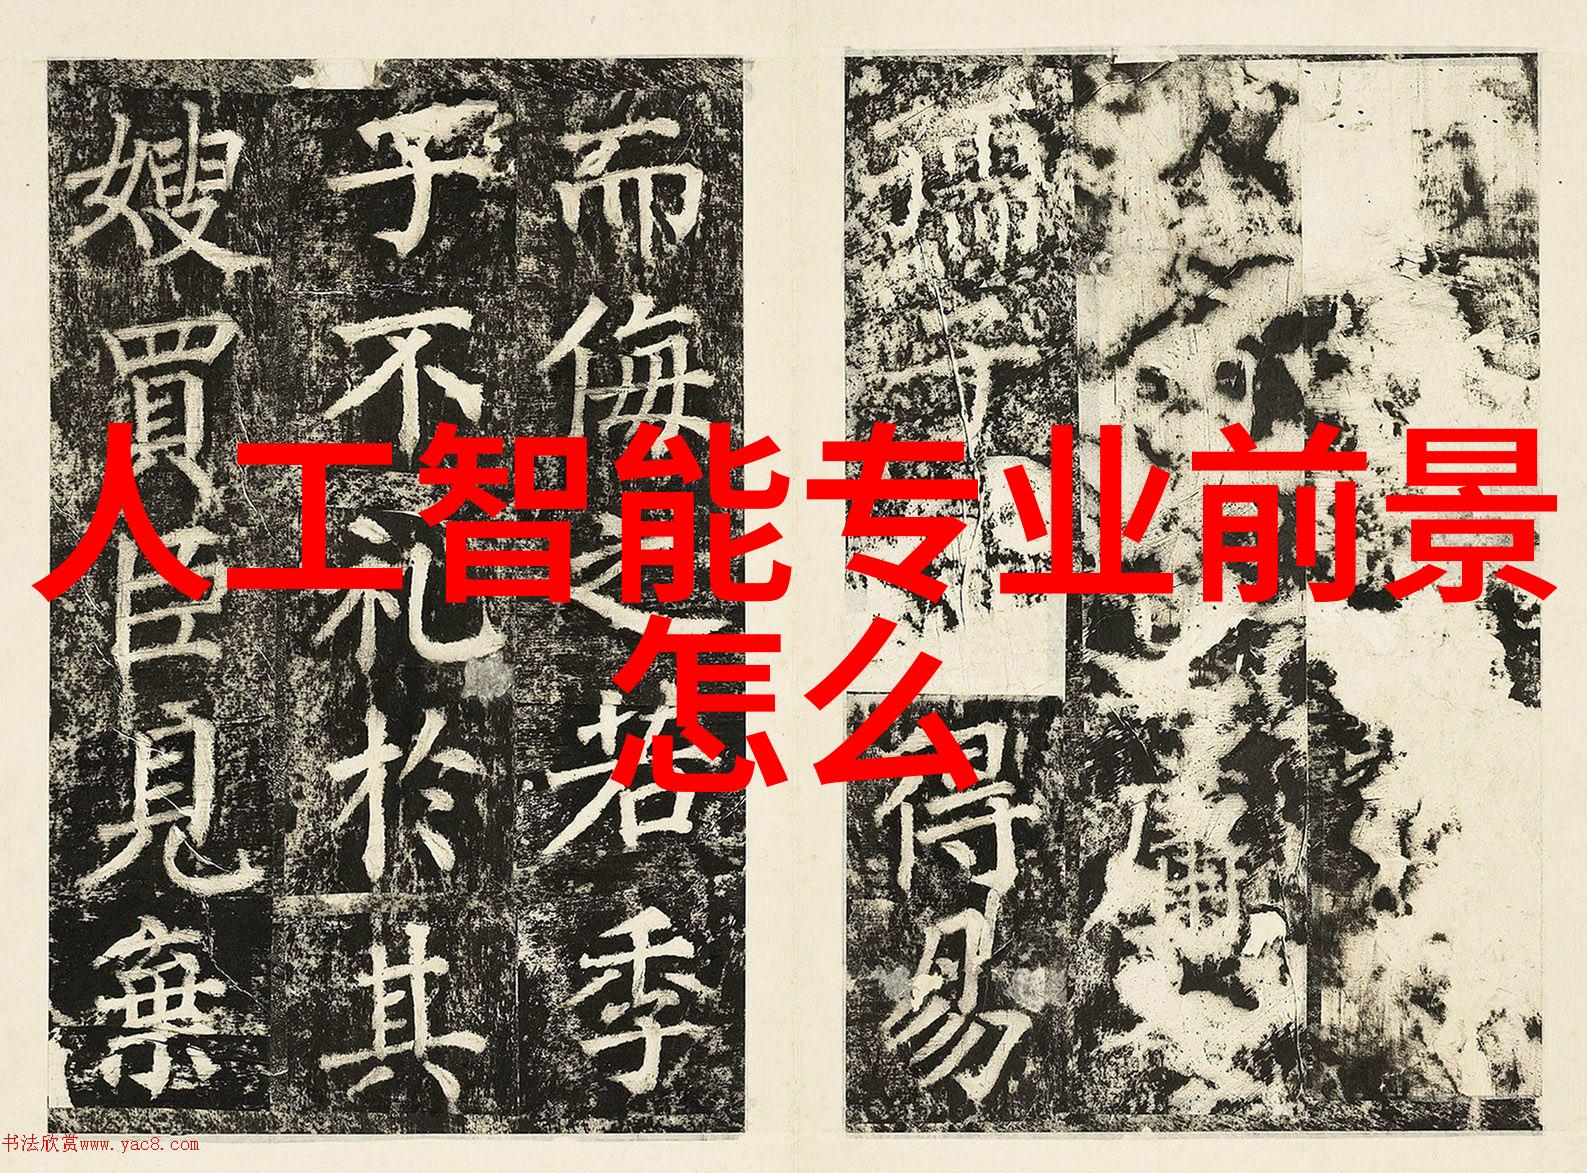 人工智能专业前景
怎么
得易
而侮之若季
子不礼於其
嫂買臣見棄
书法欣赏www.yac8.com